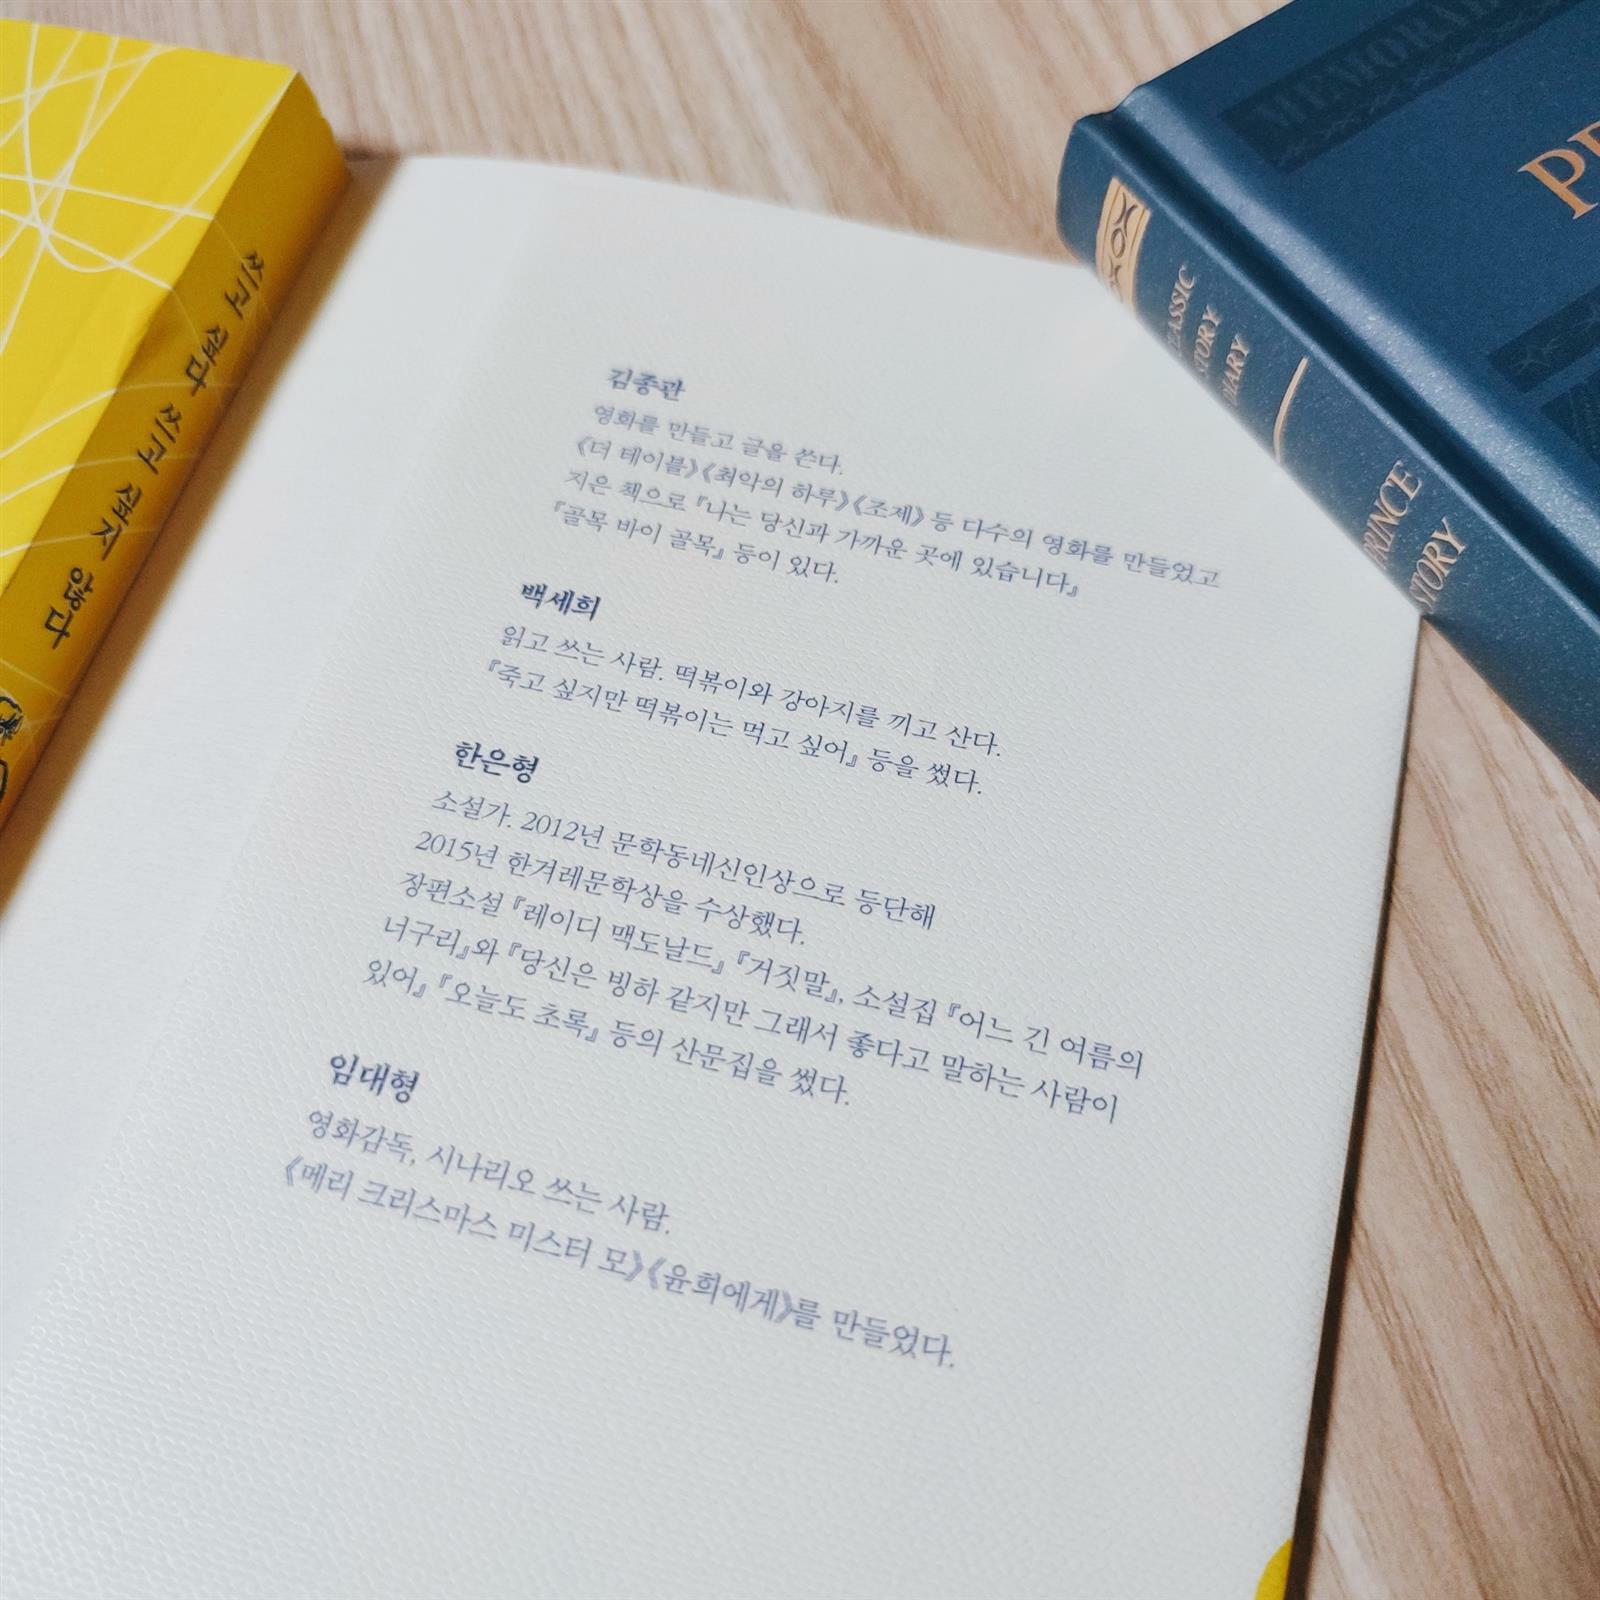 쓰고 싶다 쓰고 싶지 않다
김종관
영화를 만들고 글을 쓴다.
《더 테이블》《최악의 하루》《조제》 등 다수의 영화를 만들었고
지은 책으로 『나는 당신과 가까운 곳에 있습니다』
『골목 바이 골목』 등이 있다.
백세희
읽고 쓰는 사람. 떡볶이와 강아지를 끼고 산다.
『죽고 싶지만 떡볶이는 먹고 싶어』 등을 썼다.
한은형
소설가. 2012년 문학동네신인상으로 등단해
2015년 한겨레문학상을 수상했다.
장편소설 『레이디 맥도날드』 『거짓말』, 소설집 『어느 긴 여름의
너구리』와 『당신은 빙하 같지만 그래서 좋다고 말하는 사람이
있어』 『오늘도 초록』 등의 산문집을 썼다.
임대형
영화감독, 시나리오 쓰는 사람.
《메리 크리스마스 미스터 모》《윤희에게》를 만들었다.
CLASSIC
STORY
DIARY
PRINCE
STORY